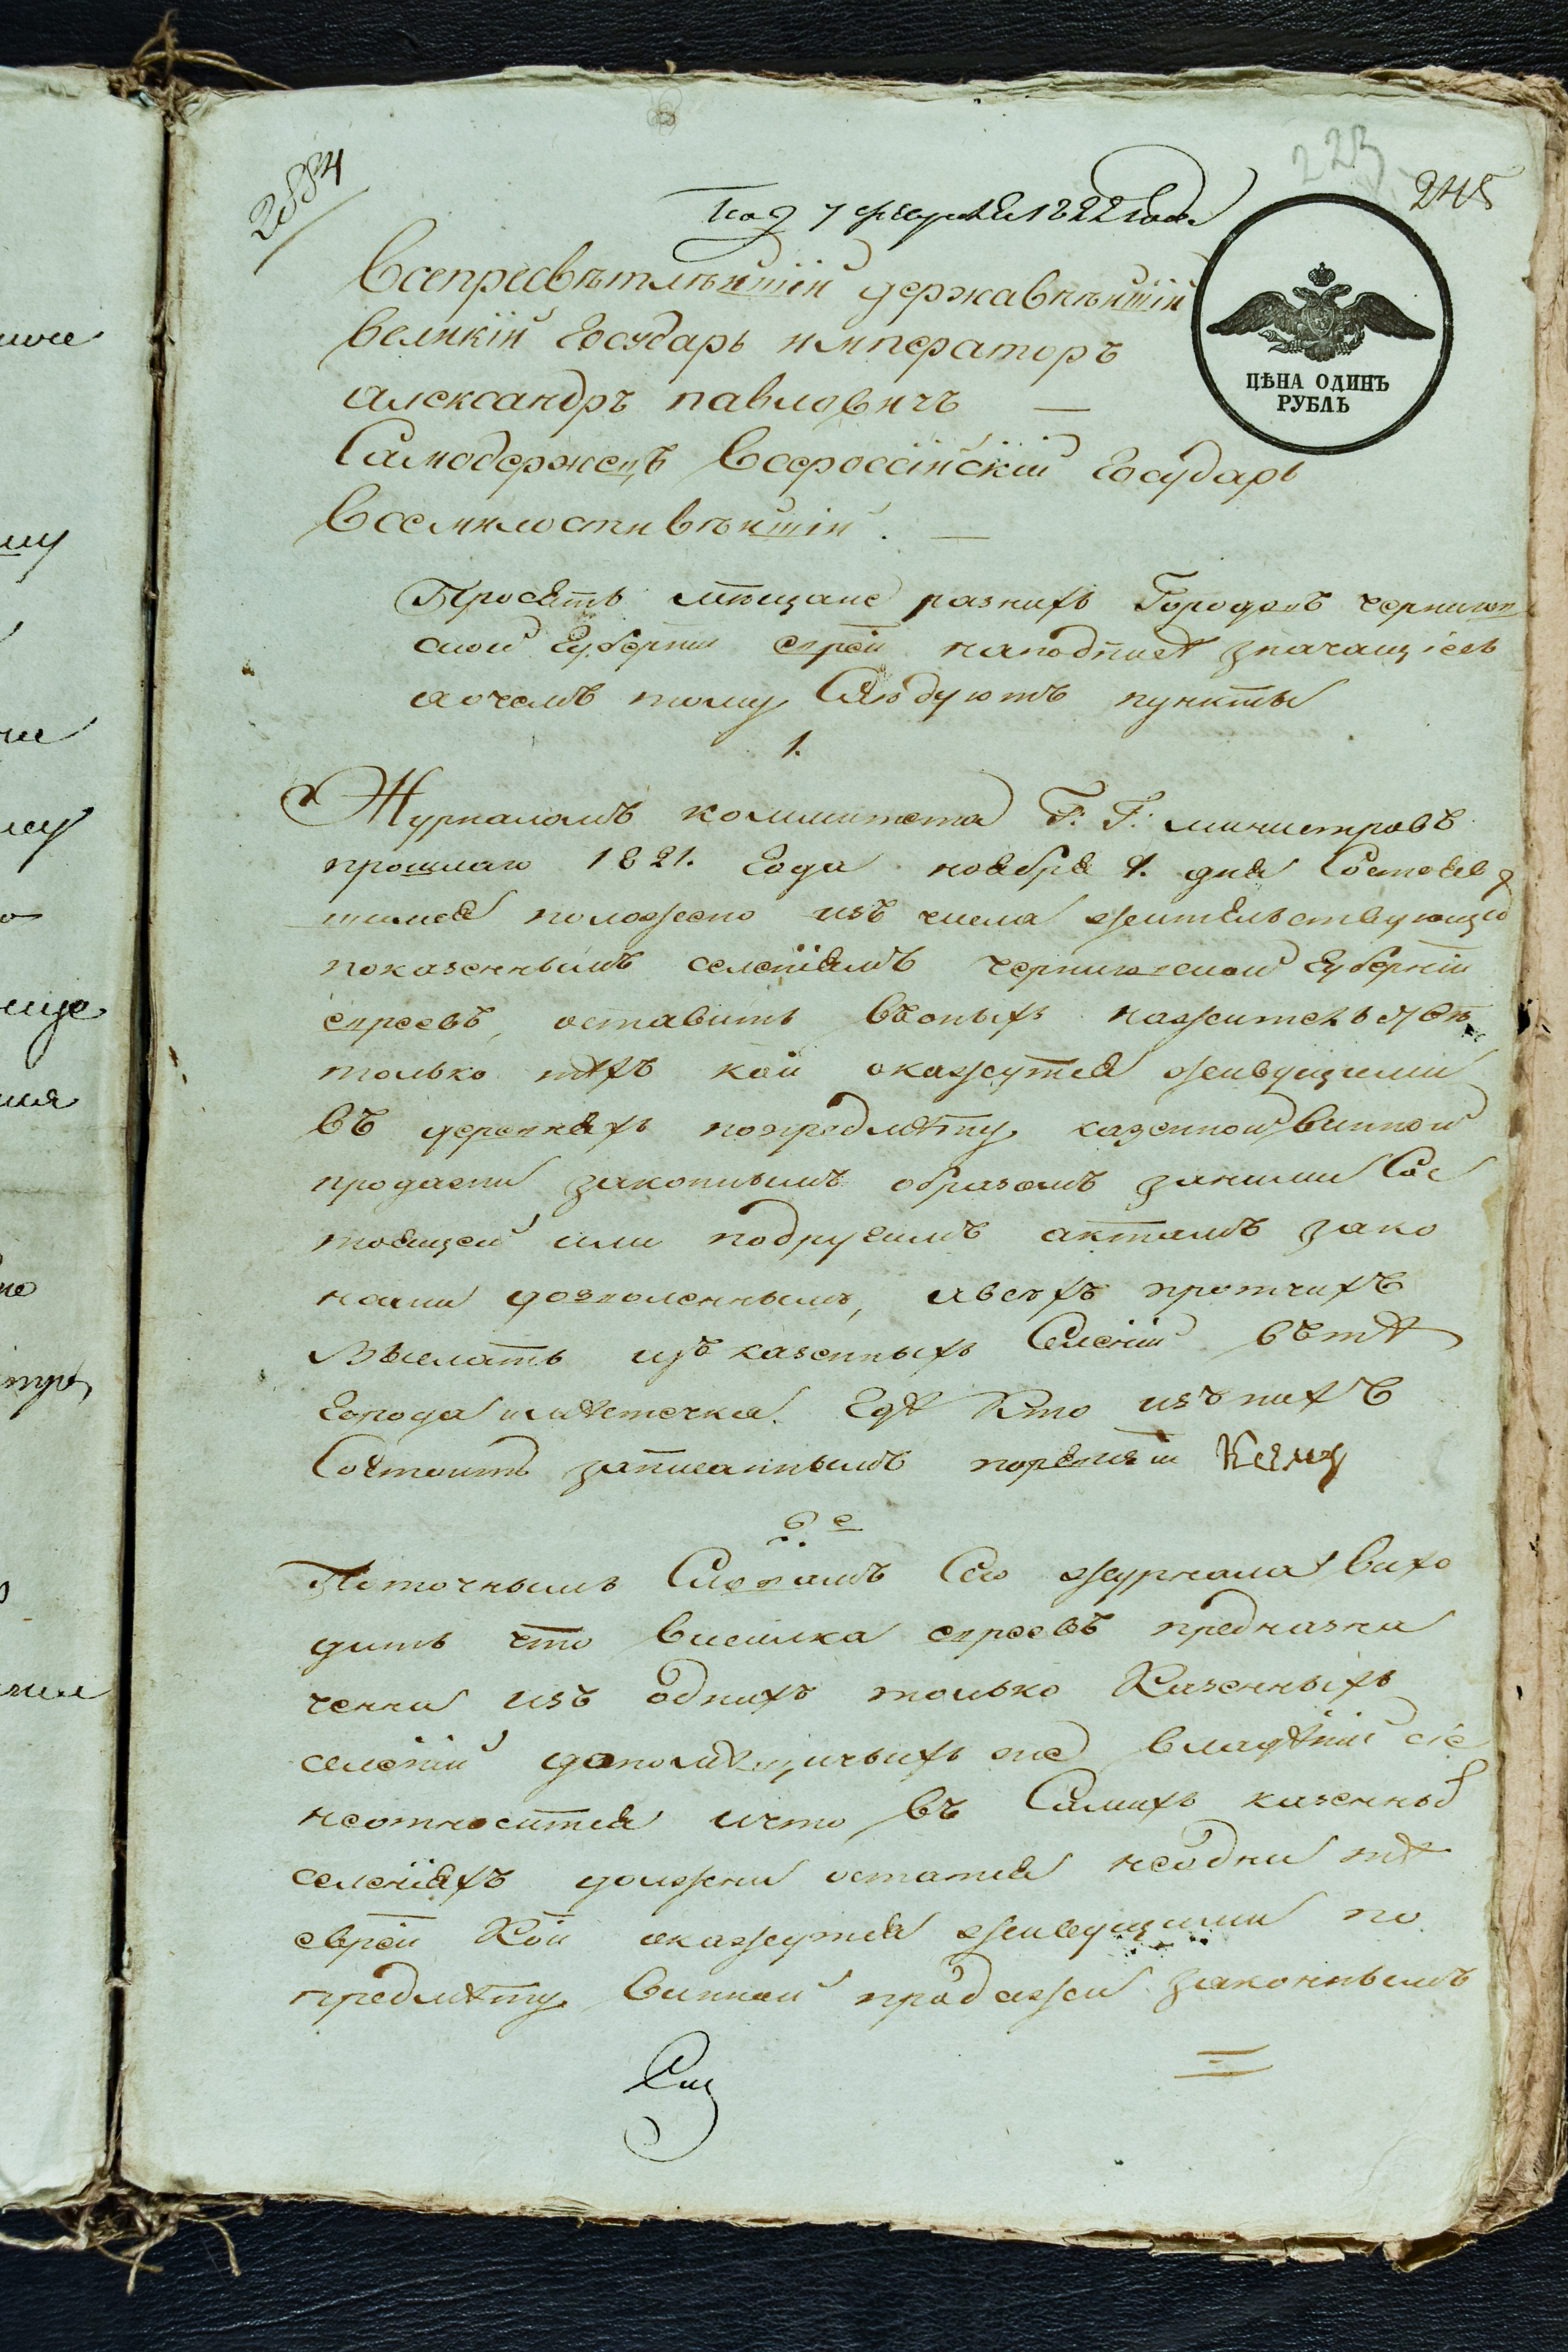 2884
223
245
Под 7 февраля 1822 года
Всепресвѣтлѣйшій державнѣйшій
великій Государь императоръ
александръ павловичъ —
Самодержецъ Всероссійскій Государь
Всемилостивѣйшій. —
ЦѢНА ОДИНЪ
РУБЛЬ
Просятъ мѣщане разнихъ Городовъ чернигов
ской Губерніи евреи наподписѣ значащіесь
аочемъ тому Слѣдуютъ пункты
1.
Журналомъ коммитета Г: Г: министровъ
прошлаго 1821. Года ноября 1. дня Состояв
шимся положено изъ числа жительствующихъ
показеннымъ селеніямъ черниговской Губерніи
евреевъ, оставить въоныхъ нажительствѣ
только тѣхъ кои окажутся живущими
въ деревняхъ попредмѣту казенной винной
продажи законнымъ образомъ заними Сос
тоящей или подругимъ актамъ зако
нами дозволеннымъ, авсѣхъ протчихъ
Выслать изъ казенныхъ Селеній вътѣ
Города имѣстечка. Гдѣ Кто изънихъ
Состоитъ записаннымъ поревизіи
2е
Поточнымъ Словамъ Сего журнала вихо
дитъ что висилка евреевъ предназна
ченна изъ однихъ только Казенныхъ
селеній допомѣщичьихъ же владѣній сіе
неотносится ичто въ Самихъ казенных
селеніяхъ должни остатся неодни тѣ
евреи Кои окажутся живущими по
предмѣту винной продажи законнымъ